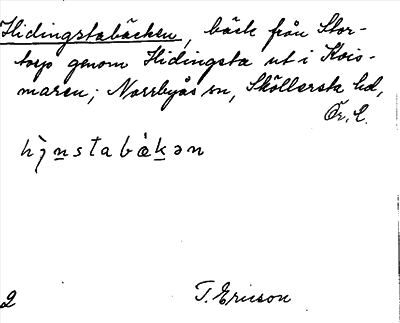 Hidingstabäcken, bäck från Stor-
torp genom Hidingsta ut i Kvis-
maren; Norrbyås sn, Sköllersta hd,
Ör. l.
hìnstabǽkən
T. Ericson
2